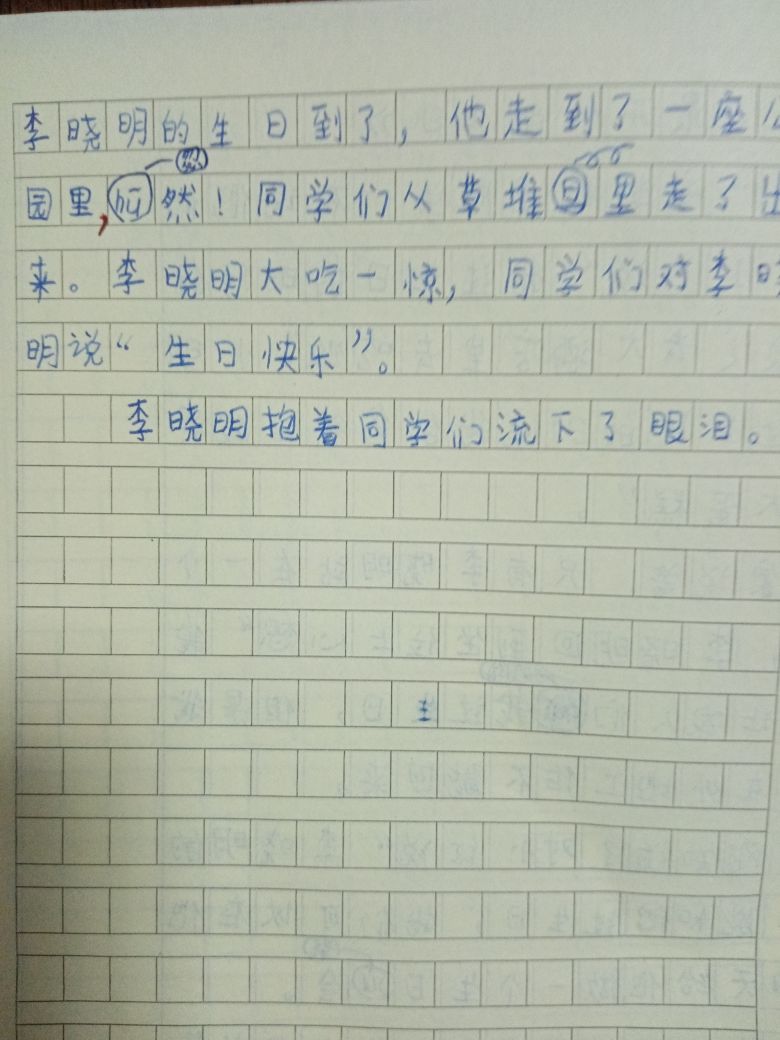 李晓明的生日到了，他走到了一座公
园里，忽然！同学们从草堆里走了出
来。李晓明大吃一惊，同学们对李晓
明说“生日快乐”。
李晓明抱着同学们流下了眼泪。